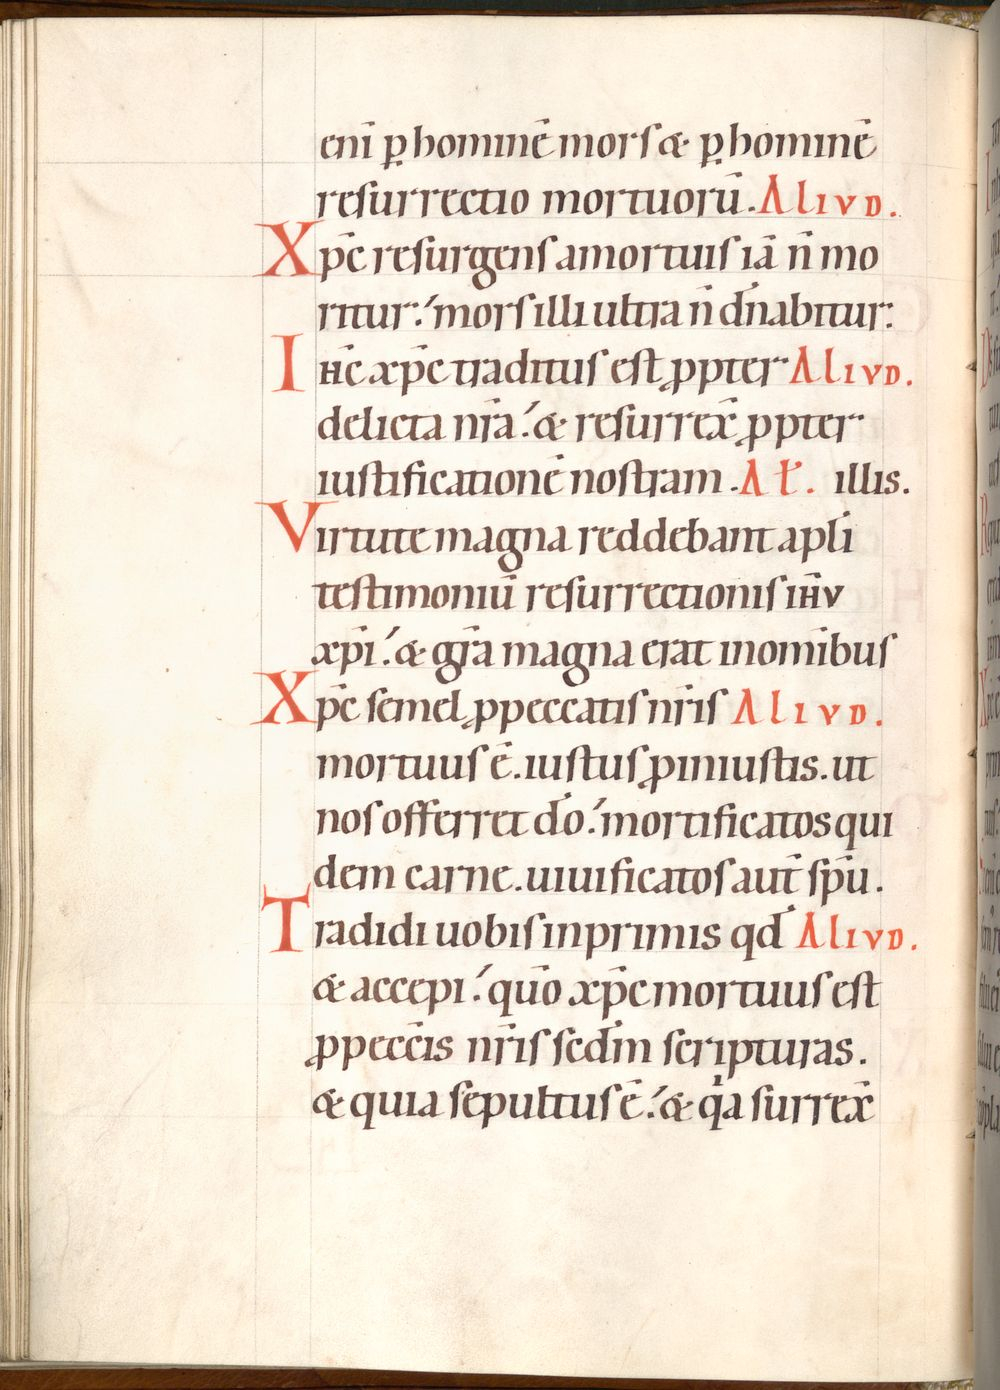 enī ꝑ hominē mors & ꝑ hominē
resurrectio mortuorū. Aliud.
Xp̄c resurgens a mortuis iā n̄ mo
ritur: mors illi ultra n̄ dn̄abitur:
Ih̄c xp̄c traditus est ꝓpter Aliud.
delicta nr̄a: & resurrex̄ ꝓpter
iustificationē nostram. Aɫ. illis.
Virtute magna reddebant apl̄i
testimoniū resurrectionis ih̄u
xp̄i: & gr̄a magna erat in om̄ibus
Xp̄c semel ꝓ peccatis nr̄is Aliud.
mortuus ē. iustus ꝓ iniustis. ut
nos offerret dō: mortificatos qui
dem carne. uiuificatos aut̄ sp̄u.
Tradidi uobis in primis qd̄ Aliud.
& accepi: quō xp̄c mortuus est
ꝓ pecc̄is nr̄is scd̄m scripturas.
& quia sepultus ē: & qa surrex̄